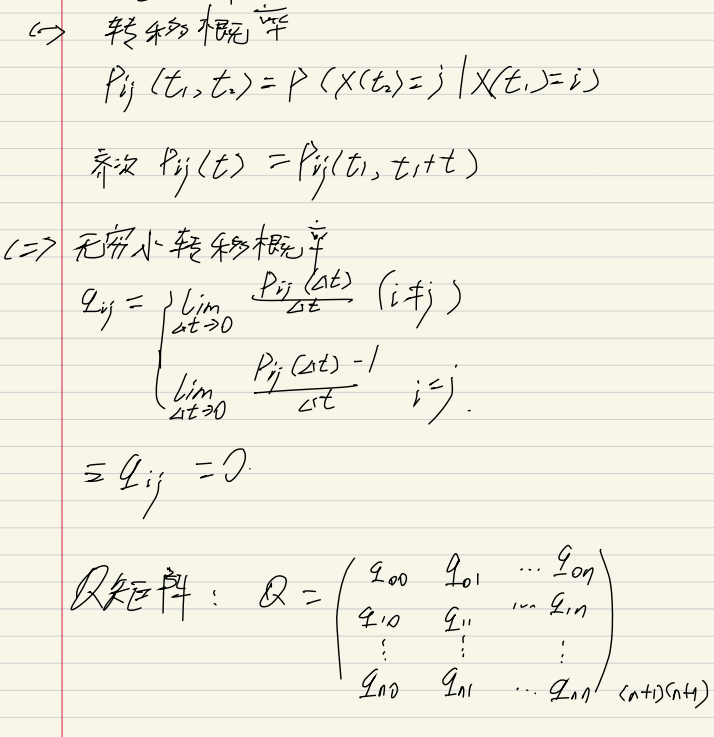 (一) 转移概率
Pij (t₁, t₂) = P (X(t₂)=j | X(t₁)=i)
齐次 Pij(t) = Pij(t₁, t₁+t)
(二) 无穷小转移概率
qij = { lim Δt→0 Pij(Δt)/Δt (i≠j)
lim Δt→0 (Pij(Δt) - 1)/Δt i=j.
Σ qij = 0.
Q矩阵: Q = ( q00 q01 ... q0n
q10 q11 ... q1n
⋮ ⋮ ⋮
qn0 qn1 ... qnn ) (n+1)(n+1)